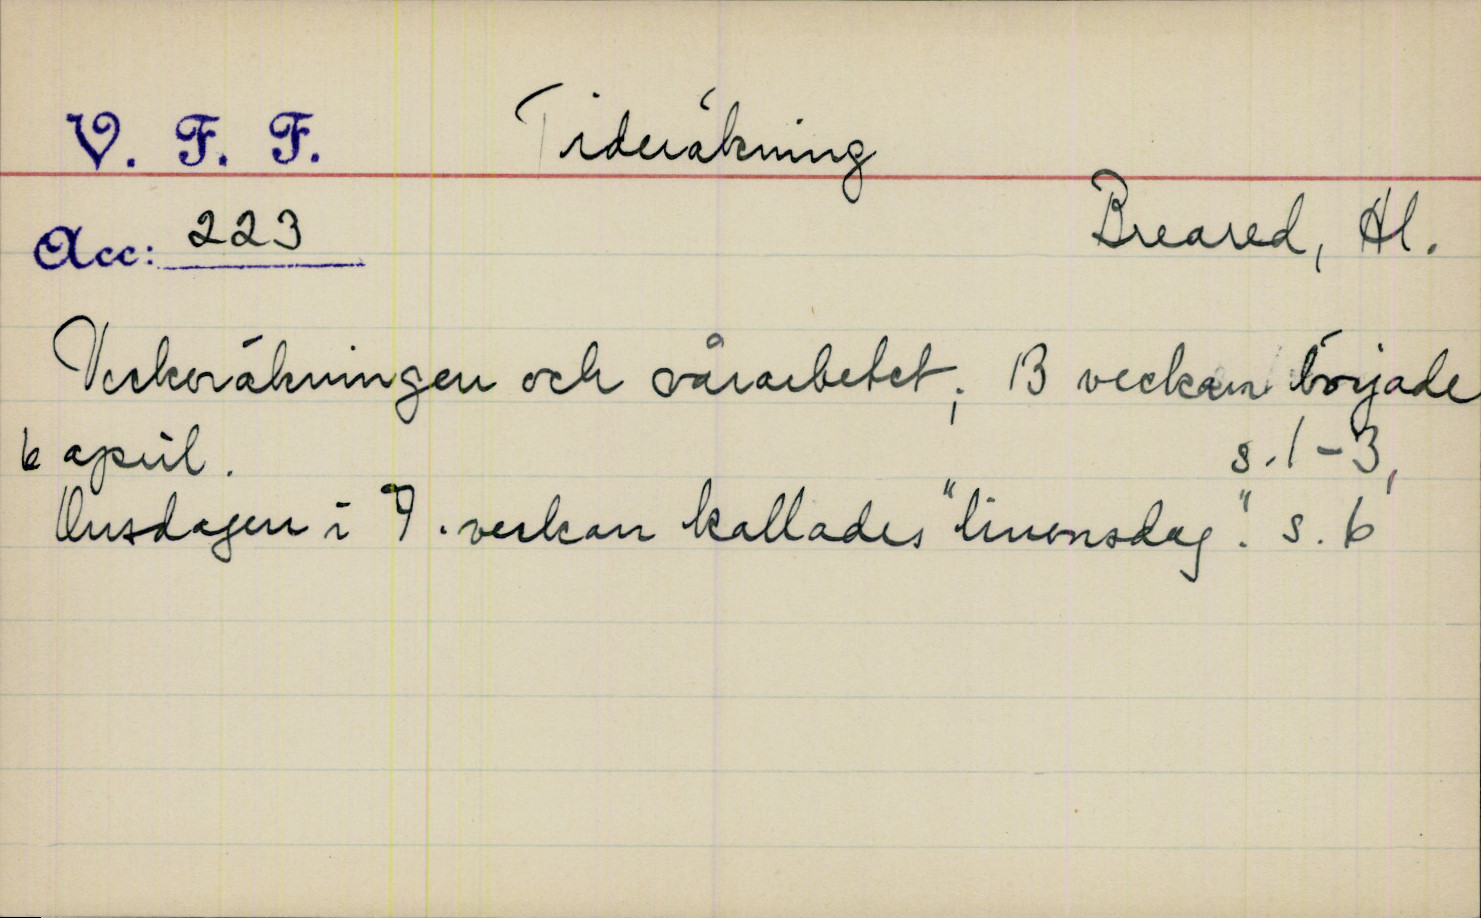 V. F. F. Tideräkning
Breared, Hl.
Acc: 223
Veckoräkningen och vårarbetet; 13 veckan började
6 april. s. 1-3,
Onsdagen i 9. veckan kallades "linonsdag". s. 6